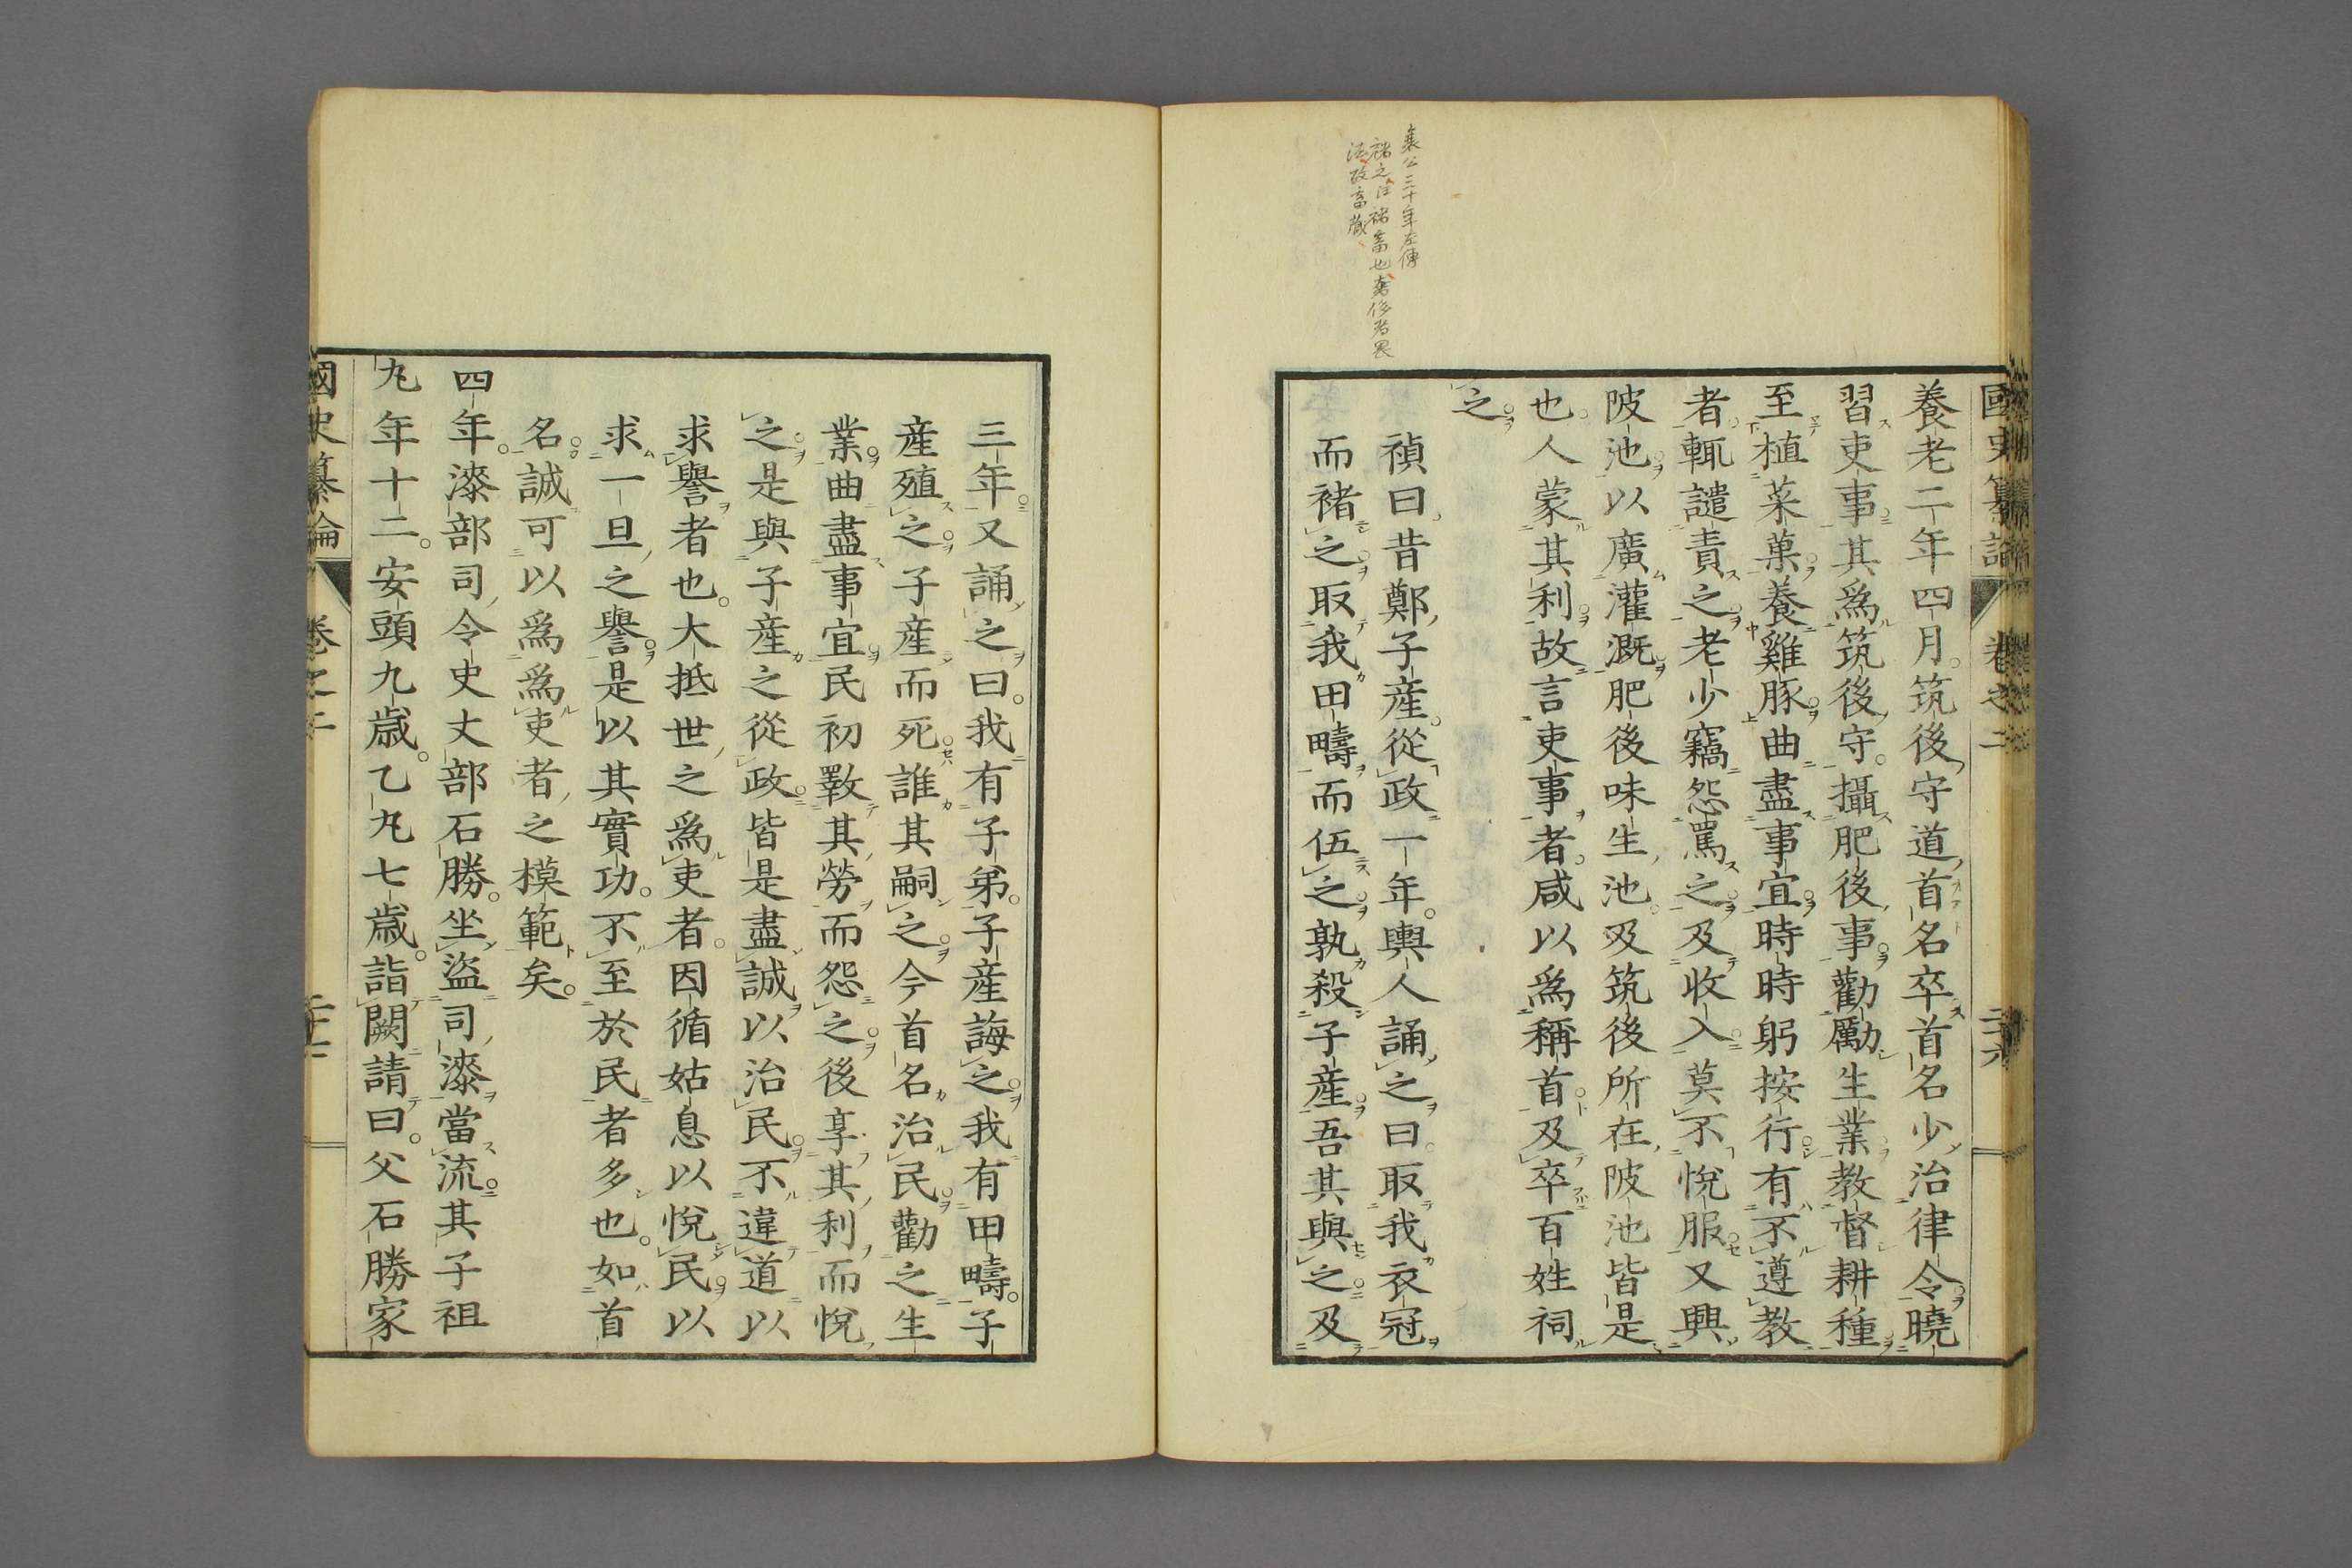 襄公三十年左傳
褚之注褚畜也奢侈者畏
法故畜藏
國史纂論
卷之二
二十六
養老二年四月筑後守道首名卒首名少治律令曉
習吏事其爲筑後守攝肥後事勸勵生業教督耕種
至植菜菓養雞豚曲盡事宜時時躬按行有不遵教
者輒譴責之老少竊怨罵之及收入莫不悅服又興
陂池以廣灌漑肥後味生池及筑後所在陂池皆是
也人蒙其利故言吏事者咸以爲稱首及卒百姓祠
之
禎曰昔鄭子產從政一年輿人誦之曰取我衣冠
而褚之取我田疇而伍之孰殺子產吾其與之及
三年又誦之曰我有子弟子產誨之我有田疇子
產殖之子產而死誰其嗣之今首名治民勸之生
業曲盡事宜民初斁其勞而怨之後享其利而悅
之是與子產之從政皆是盡誠以治民不違道以
求譽者也大抵世之爲吏者因循姑息以悅民以
求一旦之譽是以其實功不至於民者多也如首
名誠可以爲爲吏者之模範矣
四年漆部司令史丈部石勝坐盜司漆當流其子祖
九年十二安頭九歲乙九七歲詣闕請曰父石勝家
國史纂論
卷之二